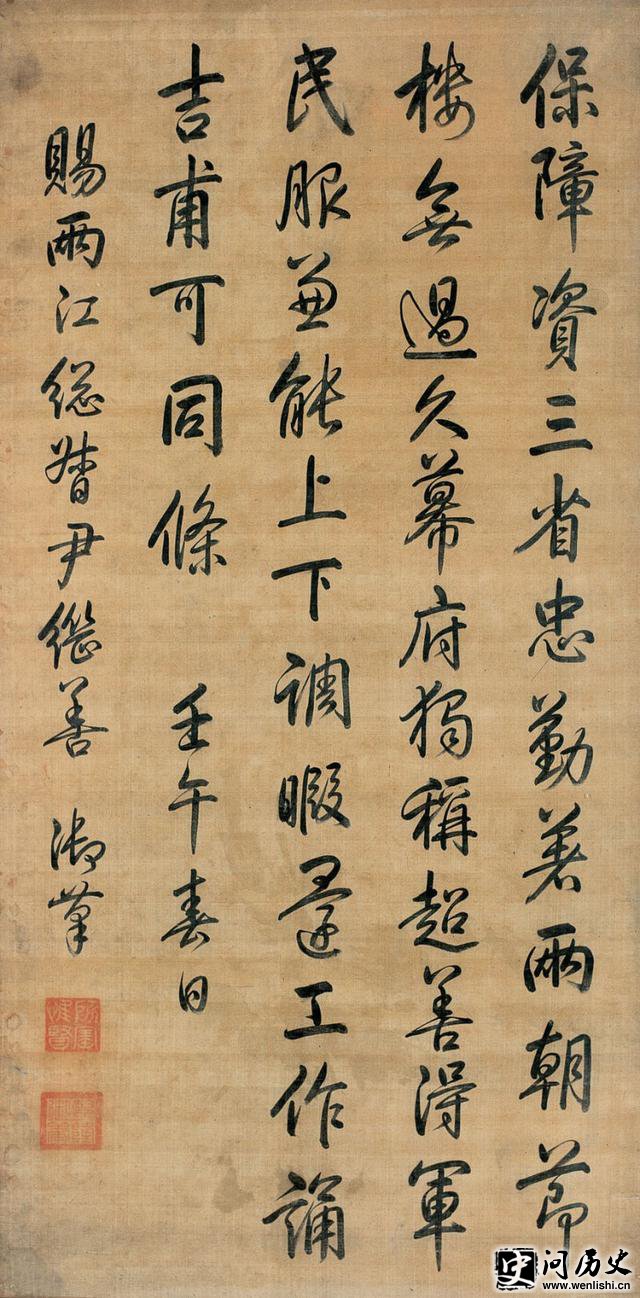 保障資三省忠勤著兩朝節
樓無過久幕府獨稱超善得軍
民服兼能上下調暇還工作誦
吉甫可同條 壬午春日
賜兩江總督尹繼善 御筆
史 问历史
www.wenlishi.cn